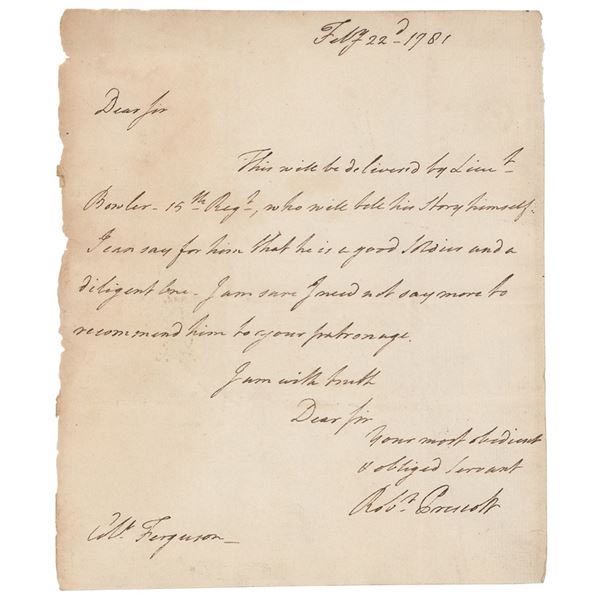 Feby 22d 1781
Dear Sir
This will be delivered by Lieut
Bowler - 15th Regt, who will tell his Story himself.
I can say for him that he is a good Soldier and a
diligent One - I am sure I need not say more to
recommend him to your patronage.
I am with truth
Dear Sir
Your most obedient
& obliged Servant
Robt Prescott
Colo. Ferguson -